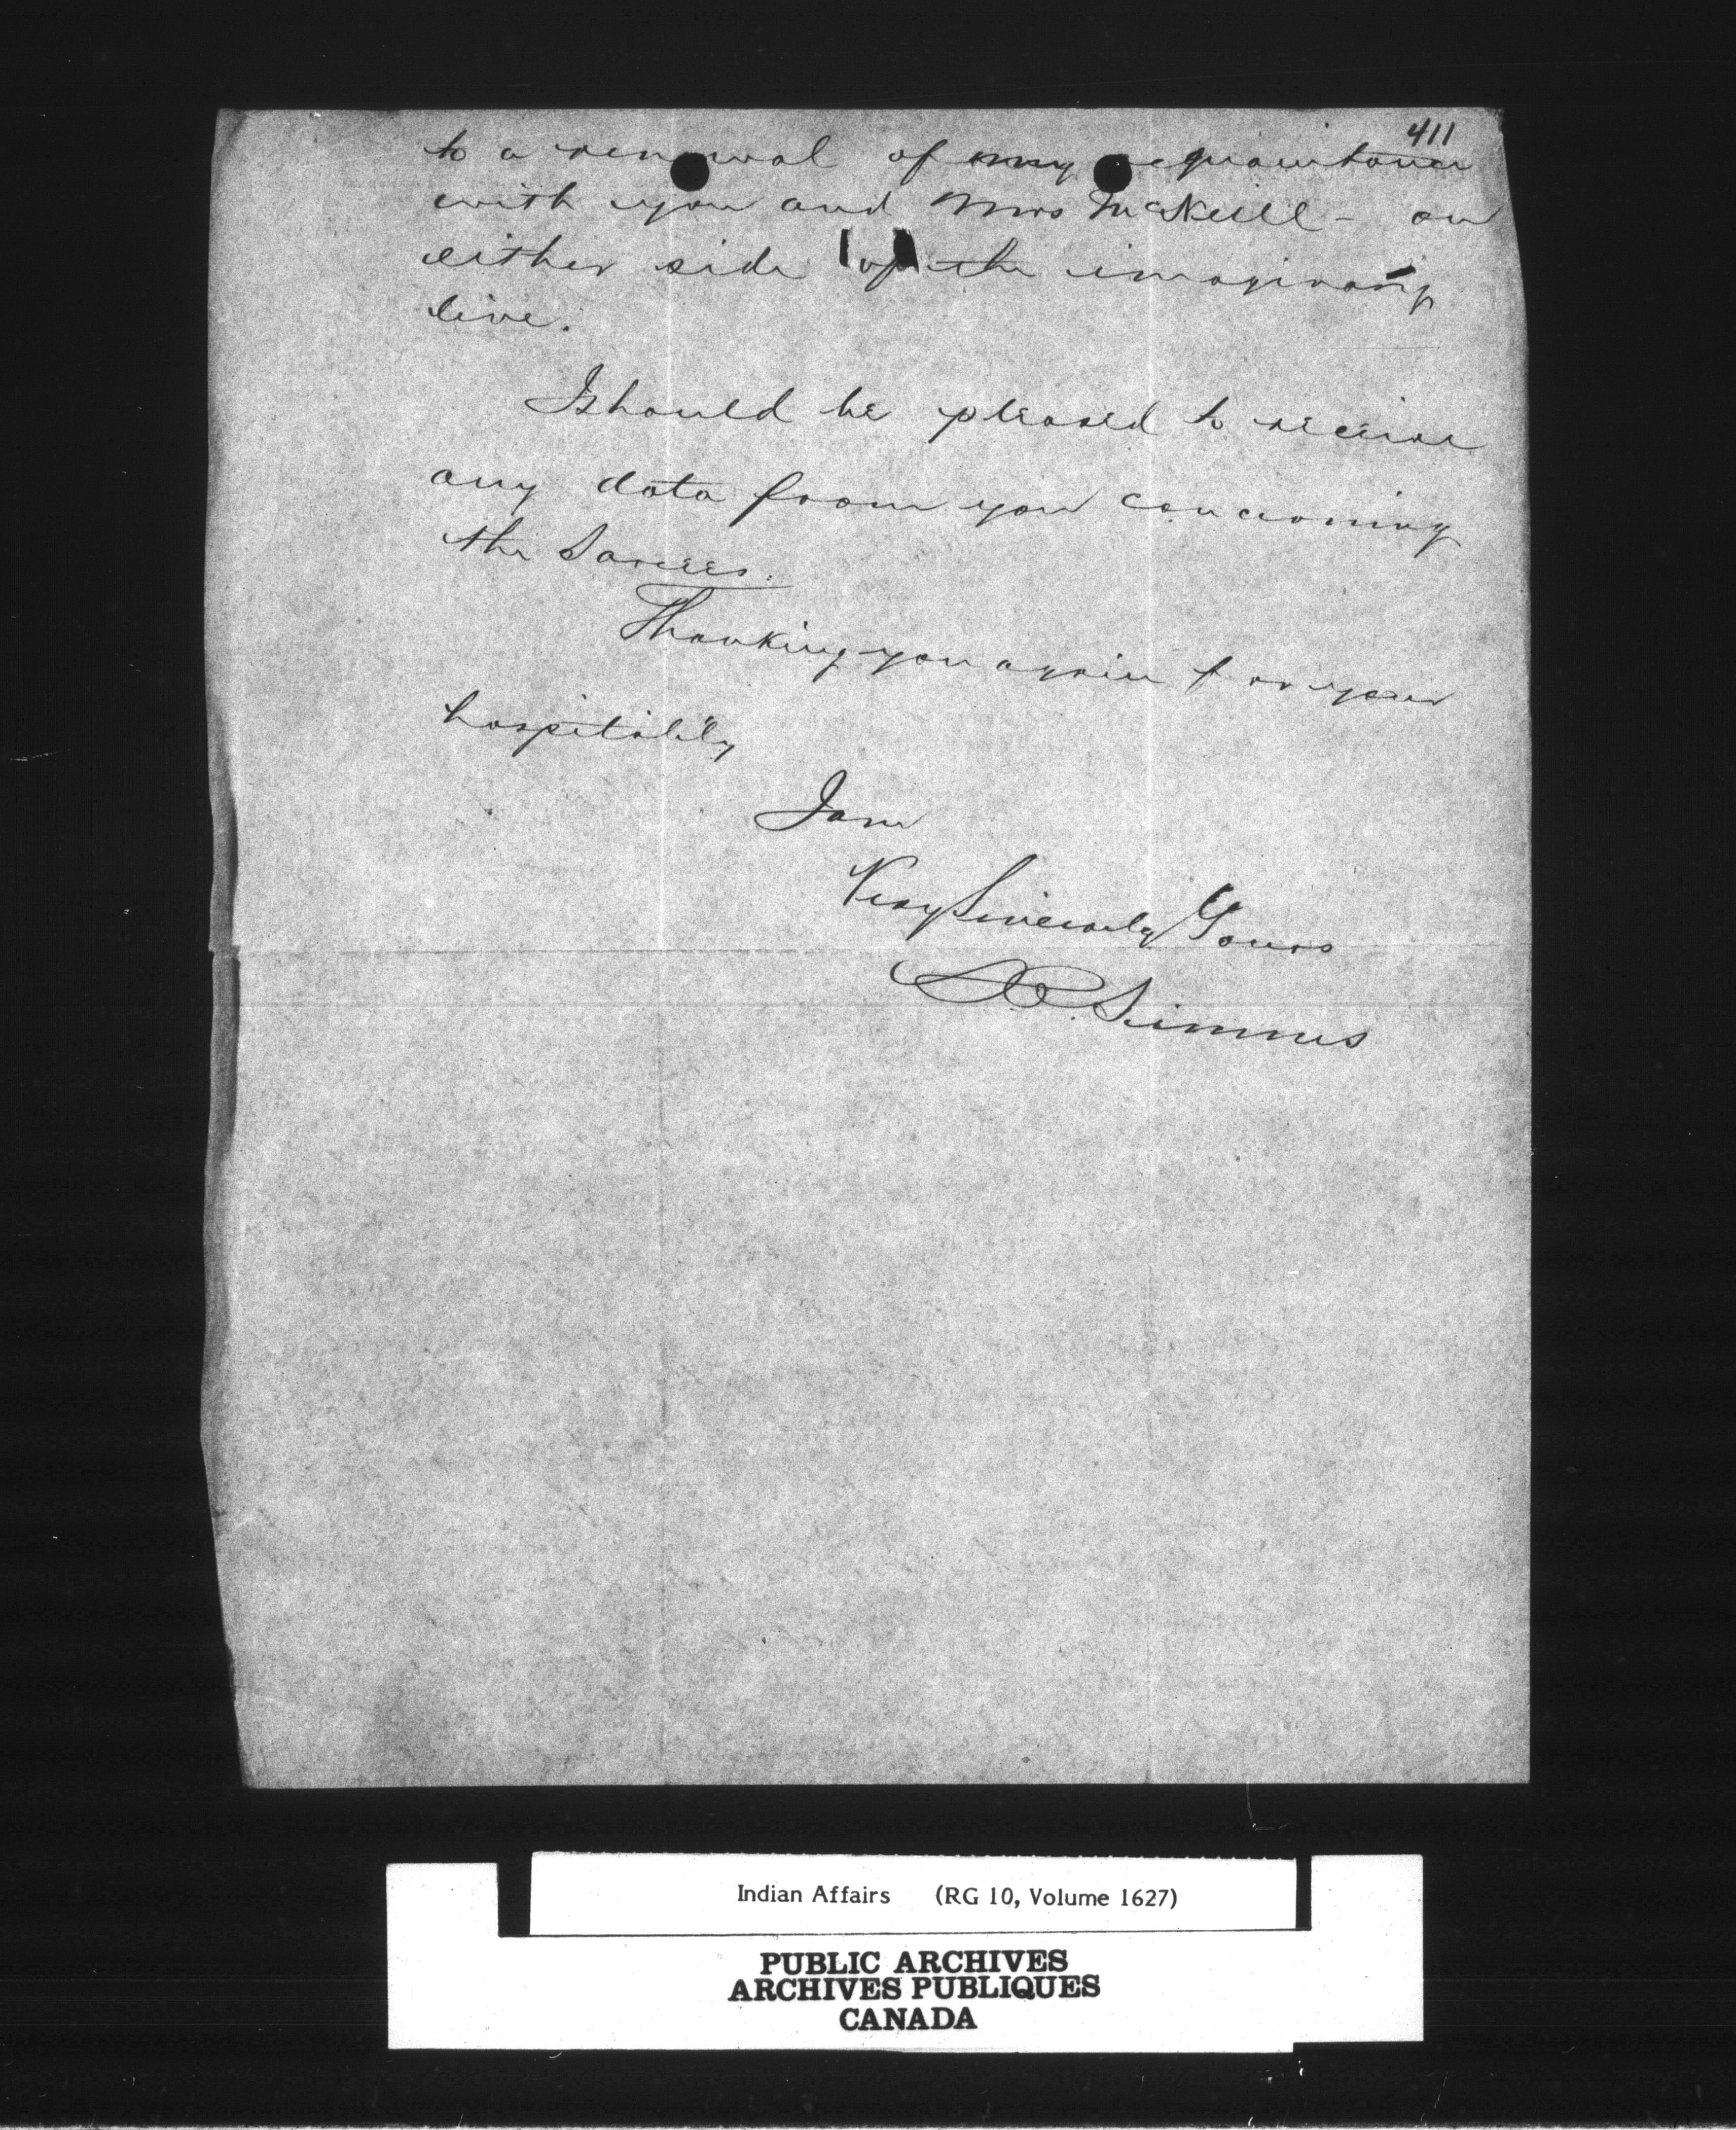 411
to a renewal of my acquaintance
with you and Mrs McNeill - on
either side of the imaginary
line.
I should be pleased to receive
any data from you concerning
the Sarcees.
Thanking you again for your
hospitality
I am
Very Sincerely Yours
S.C. Simms
Indian Affairs (RG 10, Volume 1627)
PUBLIC ARCHIVES
ARCHIVES PUBLIQUES
CANADA